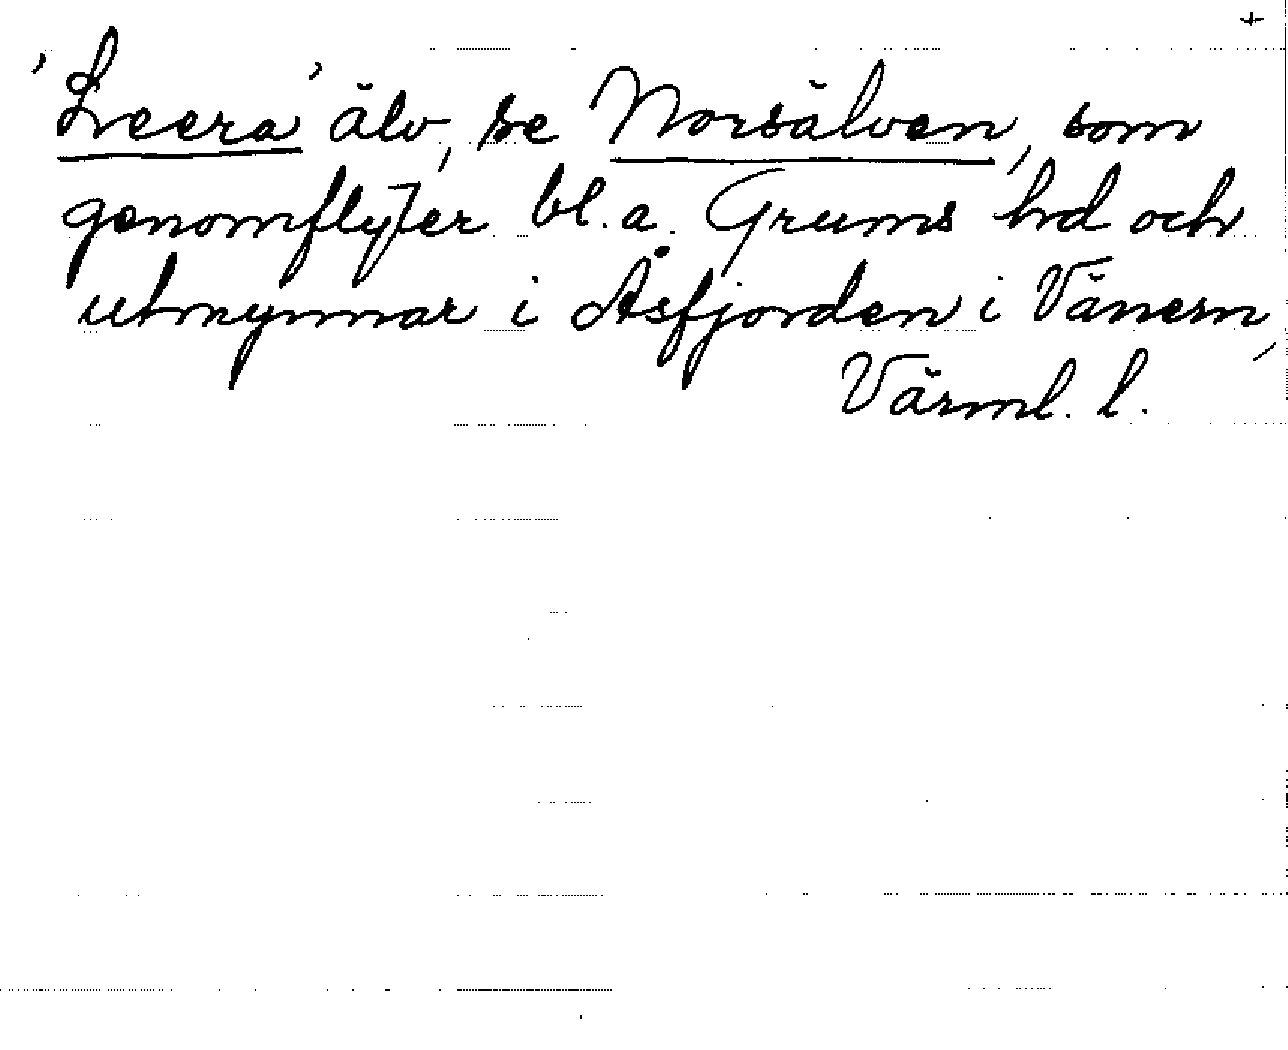 +
'Leera' älv, se Norsälven, som
genomflyter bl.a. Grums hd och
utmynnar i Åsfjorden i Vänern,
Värml. l.